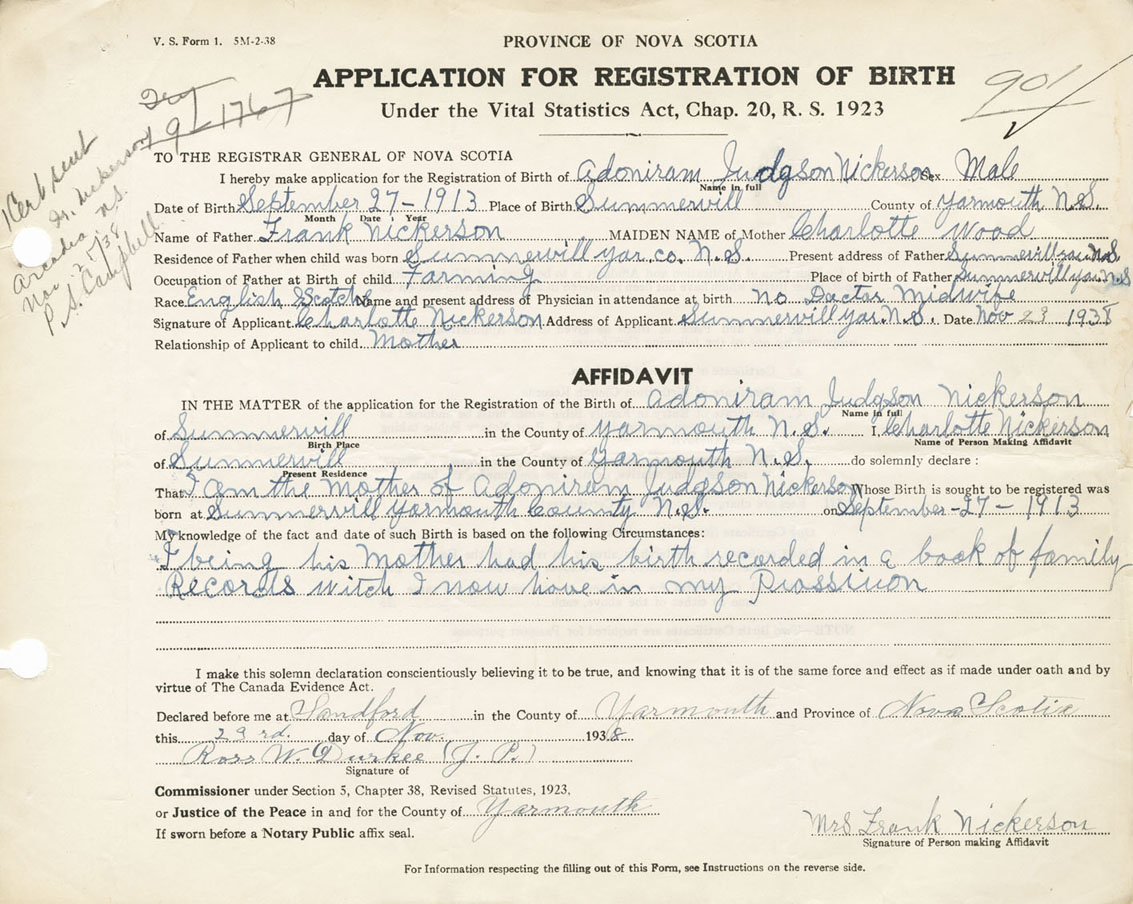 V. S. Form 1. 5M-2-38
PROVINCE OF NOVA SCOTIA
APPLICATION FOR REGISTRATION OF BIRTH
Under the Vital Statistics Act, Chap. 20, R. S. 1923
901
9 1767
1 Cert sent
Nickerson
Arcadia N.S.
Nov 2 /38
P. S. Campbell
TO THE REGISTRAR GENERAL OF NOVA SCOTIA
I hereby make application for the Registration of Birth of Adoniram Judgson Nickerson Sex Male
Name in full
Date of Birth September 27 - 1913 Place of Birth Summervill County of Yarmouth N.S.
Month Date Year
Name of Father Frank Nickerson MAIDEN NAME of Mother Charlotte Wood
Residence of Father when child was born Summervill Yar. co. N.S. Present address of Father Summervill Yar N.S
Occupation of Father at Birth of child Farming Place of birth of Father Summervill Yar N.S
Race English Scotch Name and present address of Physician in attendance at birth no Doctor Midwife
Signature of Applicant Charlotte Nickerson Address of Applicant Summervill Yar. N.S. Date Nov 23 1938
Relationship of Applicant to child Mother
AFFIDAVIT
IN THE MATTER of the application for the Registration of the Birth of Adoniram Judgson Nickerson
Name in full
of Summervill in the County of Yarmouth N.S. I, Charlotte Nickerson
Birth Place Name of Person Making Affidavit
of Summervill in the County of Yarmouth N.S. do solemnly declare :
Present Residence
That I am the Mother of Adoniram Judgson Nickerson Whose Birth is sought to be registered was
born at Summervill Yarmouth County N.S. on September-27-1913
My knowledge of the fact and date of such Birth is based on the following Circumstances:
I being his Mother had his birth recorded in a book of family
Records witch I now have in my Prossiuon
I make this solemn declaration conscientiously believing it to be true, and knowing that it is of the same force and effect as if made under oath and by
virtue of The Canada Evidence Act.
Declared before me at Sandford in the County of Yarmouth and Province of Nova Scotia
this 23rd. day of Nov. 1938
Ross W. Durkee (J. P.)
Signature of
Commissioner under Section 5, Chapter 38, Revised Statutes, 1923,
or Justice of the Peace in and for the County of Yarmouth
If sworn before a Notary Public affix seal.
Mrs Frank Nickerson
Signature of Person making Affidavit
For Information respecting the filling out of this Form, see Instructions on the reverse side.